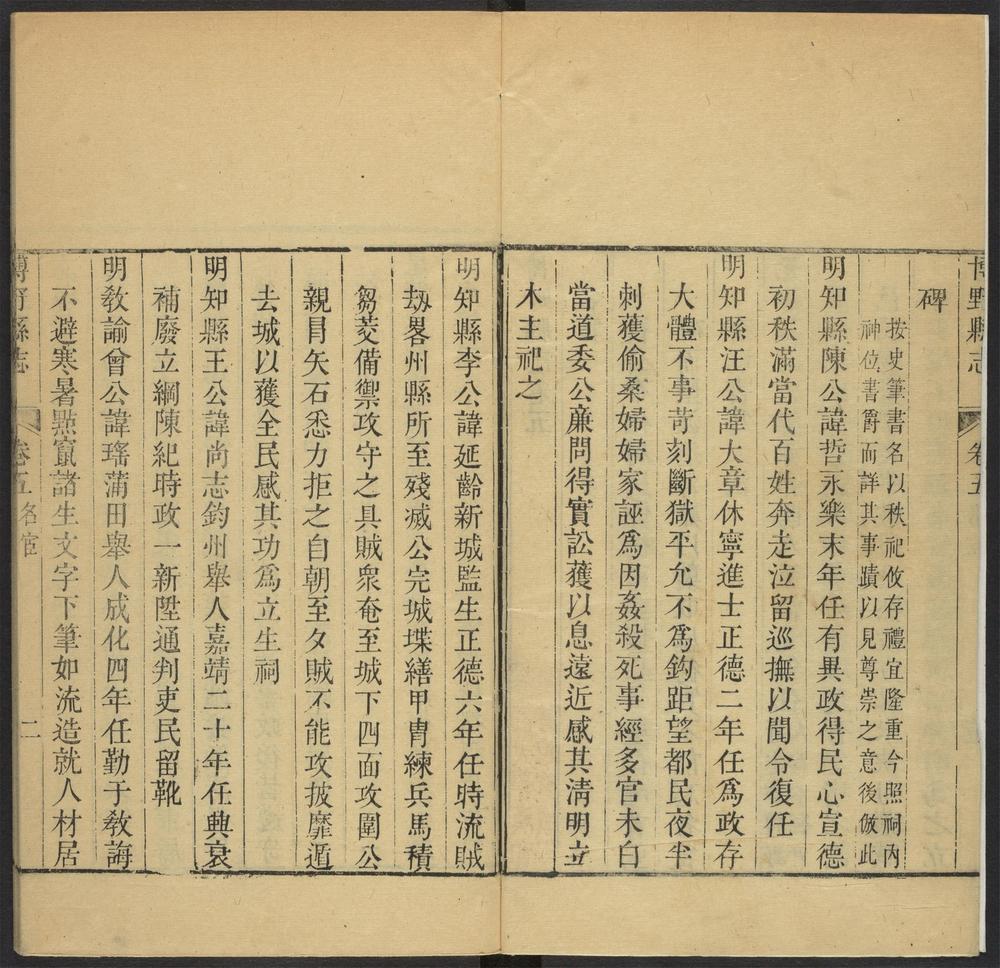 博野縣志 卷五
碑
按史筆書名以秩祀攸存禮宜隆重今照祠內
神位書爵而詳其事蹟以見尊崇之意後倣此
明知縣陳公諱哲永樂末年任有異政得民心宣德
初秩滿當代百姓奔走泣留巡撫以聞令復任
明知縣汪公諱大章休寧進士正德二年任爲政存
大體不事苛刻斷獄平允不爲鈎距望都民夜半
刺獲偷桑婦婦家誣爲因姦殺死事經多官未白
當道委公廉問得實訟獲以息遠近感其淸明立
木主祀之
明知縣李公諱延齡新城監生正德六年任時流賊
刼畧州縣所至殘滅公完城堞繕甲冑練兵馬積
芻茭備禦攻守之具賊衆奄至城下四面攻圍公
親冒矢石悉力拒之自朝至夕賊不能攻披靡遁
去城以獲全民感其功爲立生祠
明知縣王公諱尚志鈞州舉人嘉靖二十年任典衰
補廢立綱陳紀時政一新陞通判吏民留靴
明敎諭曾公諱瑤蒲田舉人成化四年任勤于敎誨
不避寒暑㸃竄諸生文字下筆如流造就人材居
博野縣志 卷五 名宦 二